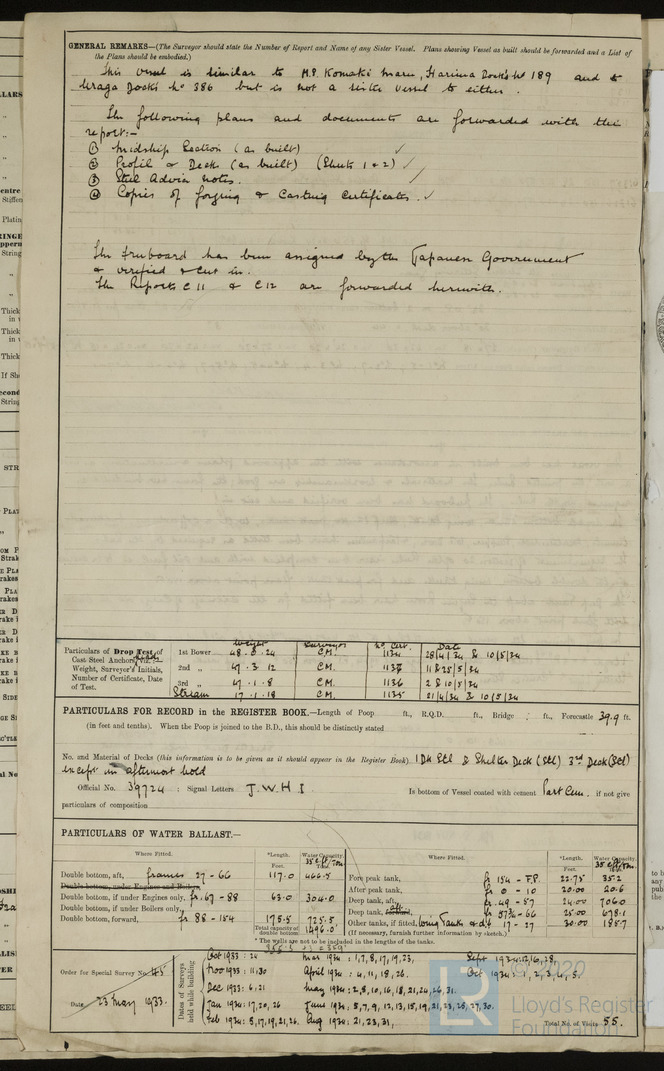 GENERAL REMARKS—(The Surveyor should state the Number of Report and Name of any Sister Vessel. Plans showing Vessel as built should be forwarded and a List of
the Plans should be embodied.)
This vessel is similar to M.S. Komaki Maru, Harima Dock's No 189 and to
Uraga Dock's No 386 but is not a sister vessel to either.
The following plans and documents are forwarded with this
report:-
① Midship Section (as built) ✓
② Profile & Decks (as built) (Sheets 1 & 2) ✓
③ Steel Advice notes. ✓
④ Copies of forging & Casting Certificates. ✓
The freeboard has been assigned by the Japanese Government
& verified & cut in.
The Reports C 11 & C 12 are forwarded herewith.
Particulars of Drop Test of
Cast Steel Anchors, viz.:—
Weight, Surveyor's Initials,
Number of Certificate, Date
of Test.
Weight Surveyor No. Cert. Date
1st Bower C.M. 1134 28/4/34 & 10/5/34
2nd „ 47.3.12 C.M. 11 & 25/5/34
3rd „ 47.1.8 C.M. 1136 2 & 10/5/34
Stream 17.1.18 C.M. 1135 21/4/34 & 10/5/34
PARTICULARS FOR RECORD in the REGISTER BOOK.—Length of Poop ft., R.Q.D. ft., Bridge ft., Forecastle 39.9 ft.
(in feet and tenths). When the Poop is joined to the B.D., this should be distinctly stated
No. and Material of Decks (this information is to be given as it should appear in the Register Book) 1 Dk Stl & Shelter Deck (Stl) 3rd Deck (Stl)
except in aftermost hold
Official No. 39724 : Signal Letters J.W.H.I Is bottom of Vessel coated with cement Part Cem. if not give
particulars of composition
PARTICULARS OF WATER BALLAST.—
Where Fitted. *Length. Feet. Water Capacity. 35 cft/Ton Tons. Where Fitted. *Length. Feet. Water Capacity. 35 cft/Ton Tons.
Double bottom, aft, frames 27 - 66 117.0 466.5 Fore peak tank, fr 154 - F.P. 22.75 35.2
Double bottom, under Engines and Boilers After peak tank, fr 0 - 10 20.00 20.6
Double bottom, if under Engines only, fr. 67 - 88 63.0 304.0 Deep tank, aft, fr 49 - 57 24.00 706.0
Double bottom, if under Boilers only, Deep tank, forward, aft 25.00 678.1
Double bottom, forward, fr 88 - 154 175.5 725.5 Other tanks, if fitted, 17 - 27 30.00 185.7
Total capacity of double bottom 1496.0 (If necessary, furnish further information by sketch.)
* The wells are not to be included in the lengths of the tanks.
Order for Special Survey No. 45
Date 23 May 1933.
Dates of Surveys held while building
Oct 1933 : 24 Mar 1934 : 1, 7, 8, 17, 19, 23, Sept 1934 : 12, 16, 28.
Nov 1933 : 11, 30 April 1934 : 4, 11, 18, 26. Oct 1934 : 1, 2, 3, 4, 5.
Dec 1933 : 6, 21 May 1934 : 2, 8, 10, 16, 18, 21, 24, 26, 31.
Jan 1934 : 17, 20, 26 June 1934 : 5, 7, 9, 12, 13, 15, 19, 21, 23, 25, 27, 30.
Feb 1934 : 8, 17, 19, 21, 26. Aug 1934 : 21, 23, 31,
Total No. of Visits 55.
© 2020
Lloyd's Register
Foundation
LR